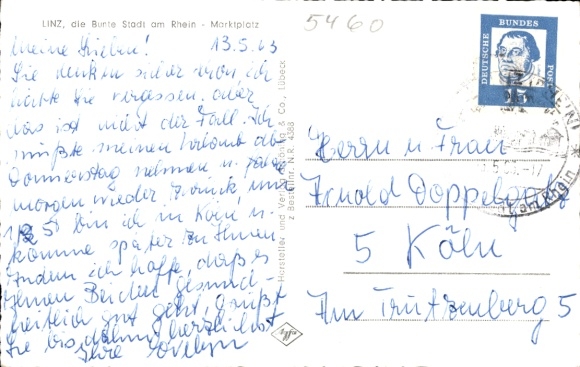 LINZ, die Bunte Stadt am Rhein - Marktplatz
5460
Meine Lieben! 13.5.63
Sie denken sicher schon, ich
hätte Sie vergessen, aber
das ist nicht der Fall. Ich
mußte meinen Urlaub ab
Donnerstag nehmen u. fahre
morgen wieder zurück und
bin ich in Köln u.
komme später zu Ihnen.
Indem ich hoffe, daß es
Ihnen Beiden gesund-
heitlich gut geht, grüßt
Sie bis dahin herzlichst
Ihre Evelyn
Hersteller und Verlag & Co., Lübeck
Bestellnr. N.R. 4368
DEUTSCHE BUNDESPOST
15
Herrn u Frau
Arnold Doppelgatz
5 Köln
Am Trutzenberg 5